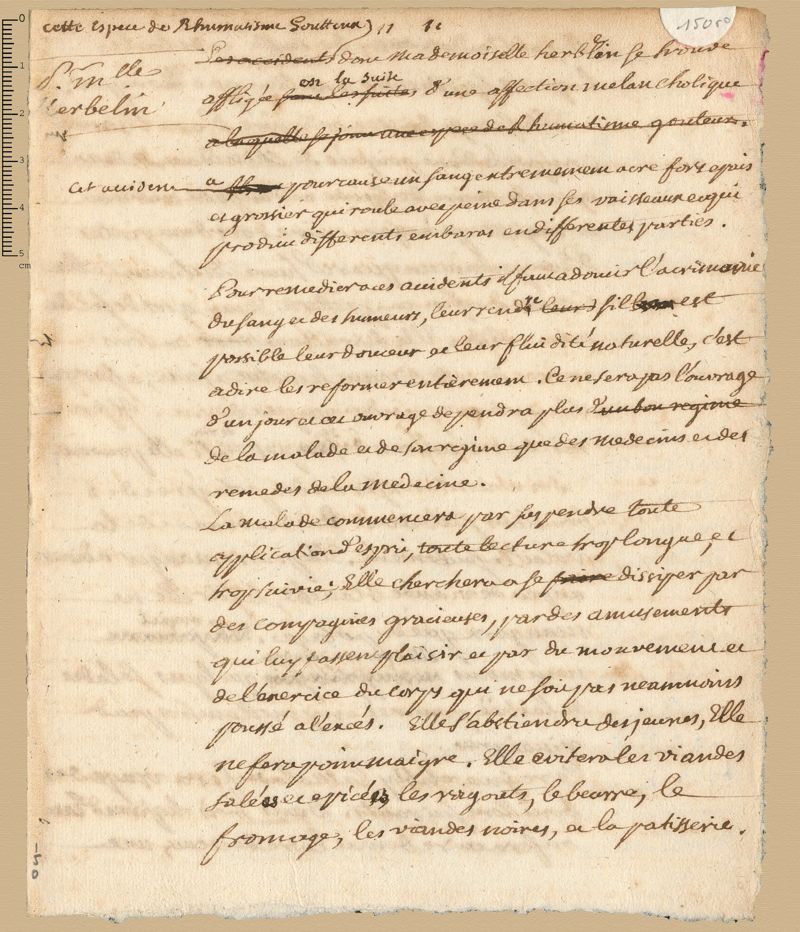 cette Espece de Rhumatisme Goutteux
15050
Pr. Mlle
herbelin
Les accidents donc Mademoiselle herblin se trouve
est la suite
affligée sont les suites d'une affection melancholique
a laquelle se joint une espece de Rhumatisme gouteux.
Cet accident a pour cause un sang extrememem acre fort epais
et grossier qui roule avec peine dans ses vaisseaux et qui
produit differents embaras en differentes parties.
Pour remedier a ces accidents il faut adoucir l'acrimonie
du sang et des humeurs, leur rendre leurs s'il est
possible leur douceur et leur fluidité naturelle, c'est
a dire les reformer entièrement. Ce ne sera pas l'ouvrage
d'un jour et cet ouvrage dependra plus d'un bon regime
de la malade et de son regime que des medecins et des
remedes de la medecine.
La malade commencera par suspendre toute
application d'esprit, toute lecture trop longue, et
trop suivie; Elle cherchera a se faire dissiper par
des compagnies gracieuses, par des amusements
qui luy fassent plaisir et par du mouvement et
de l'exercice du corps qui ne soit pas neammoins
poussé a l'excés. Elle s'abstiendra des jeunes, Elle
ne fera point maigre. Elle evitera les viandes
salées et epicées, les ragouts, le beurre, le
fromage, les viandes noires, et la patisserie.